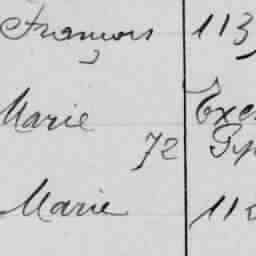 François 113
Marie
72
Marie 11